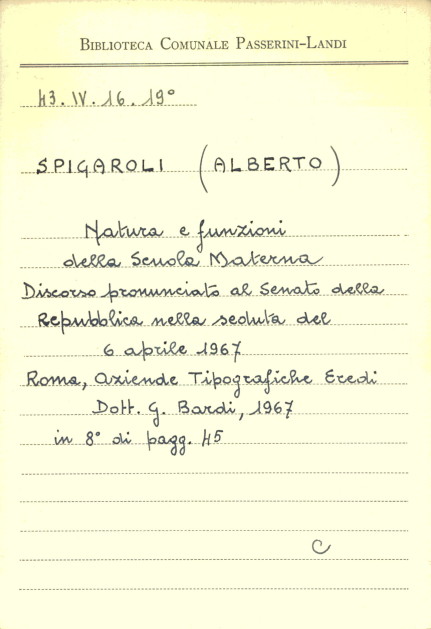 BIBLIOTECA COMUNALE PASSERINI-LANDI
43. IV. 16. 19°
SPIGAROLI (ALBERTO)
Natura e funzioni
della Scuola Materna
Discorso pronunciato al Senato della
Repubblica nella seduta del
6 aprile 1967
Roma, Aziende Tipografiche Eredi
Dott. G. Bardi, 1967
in 8° di pagg. 45
C